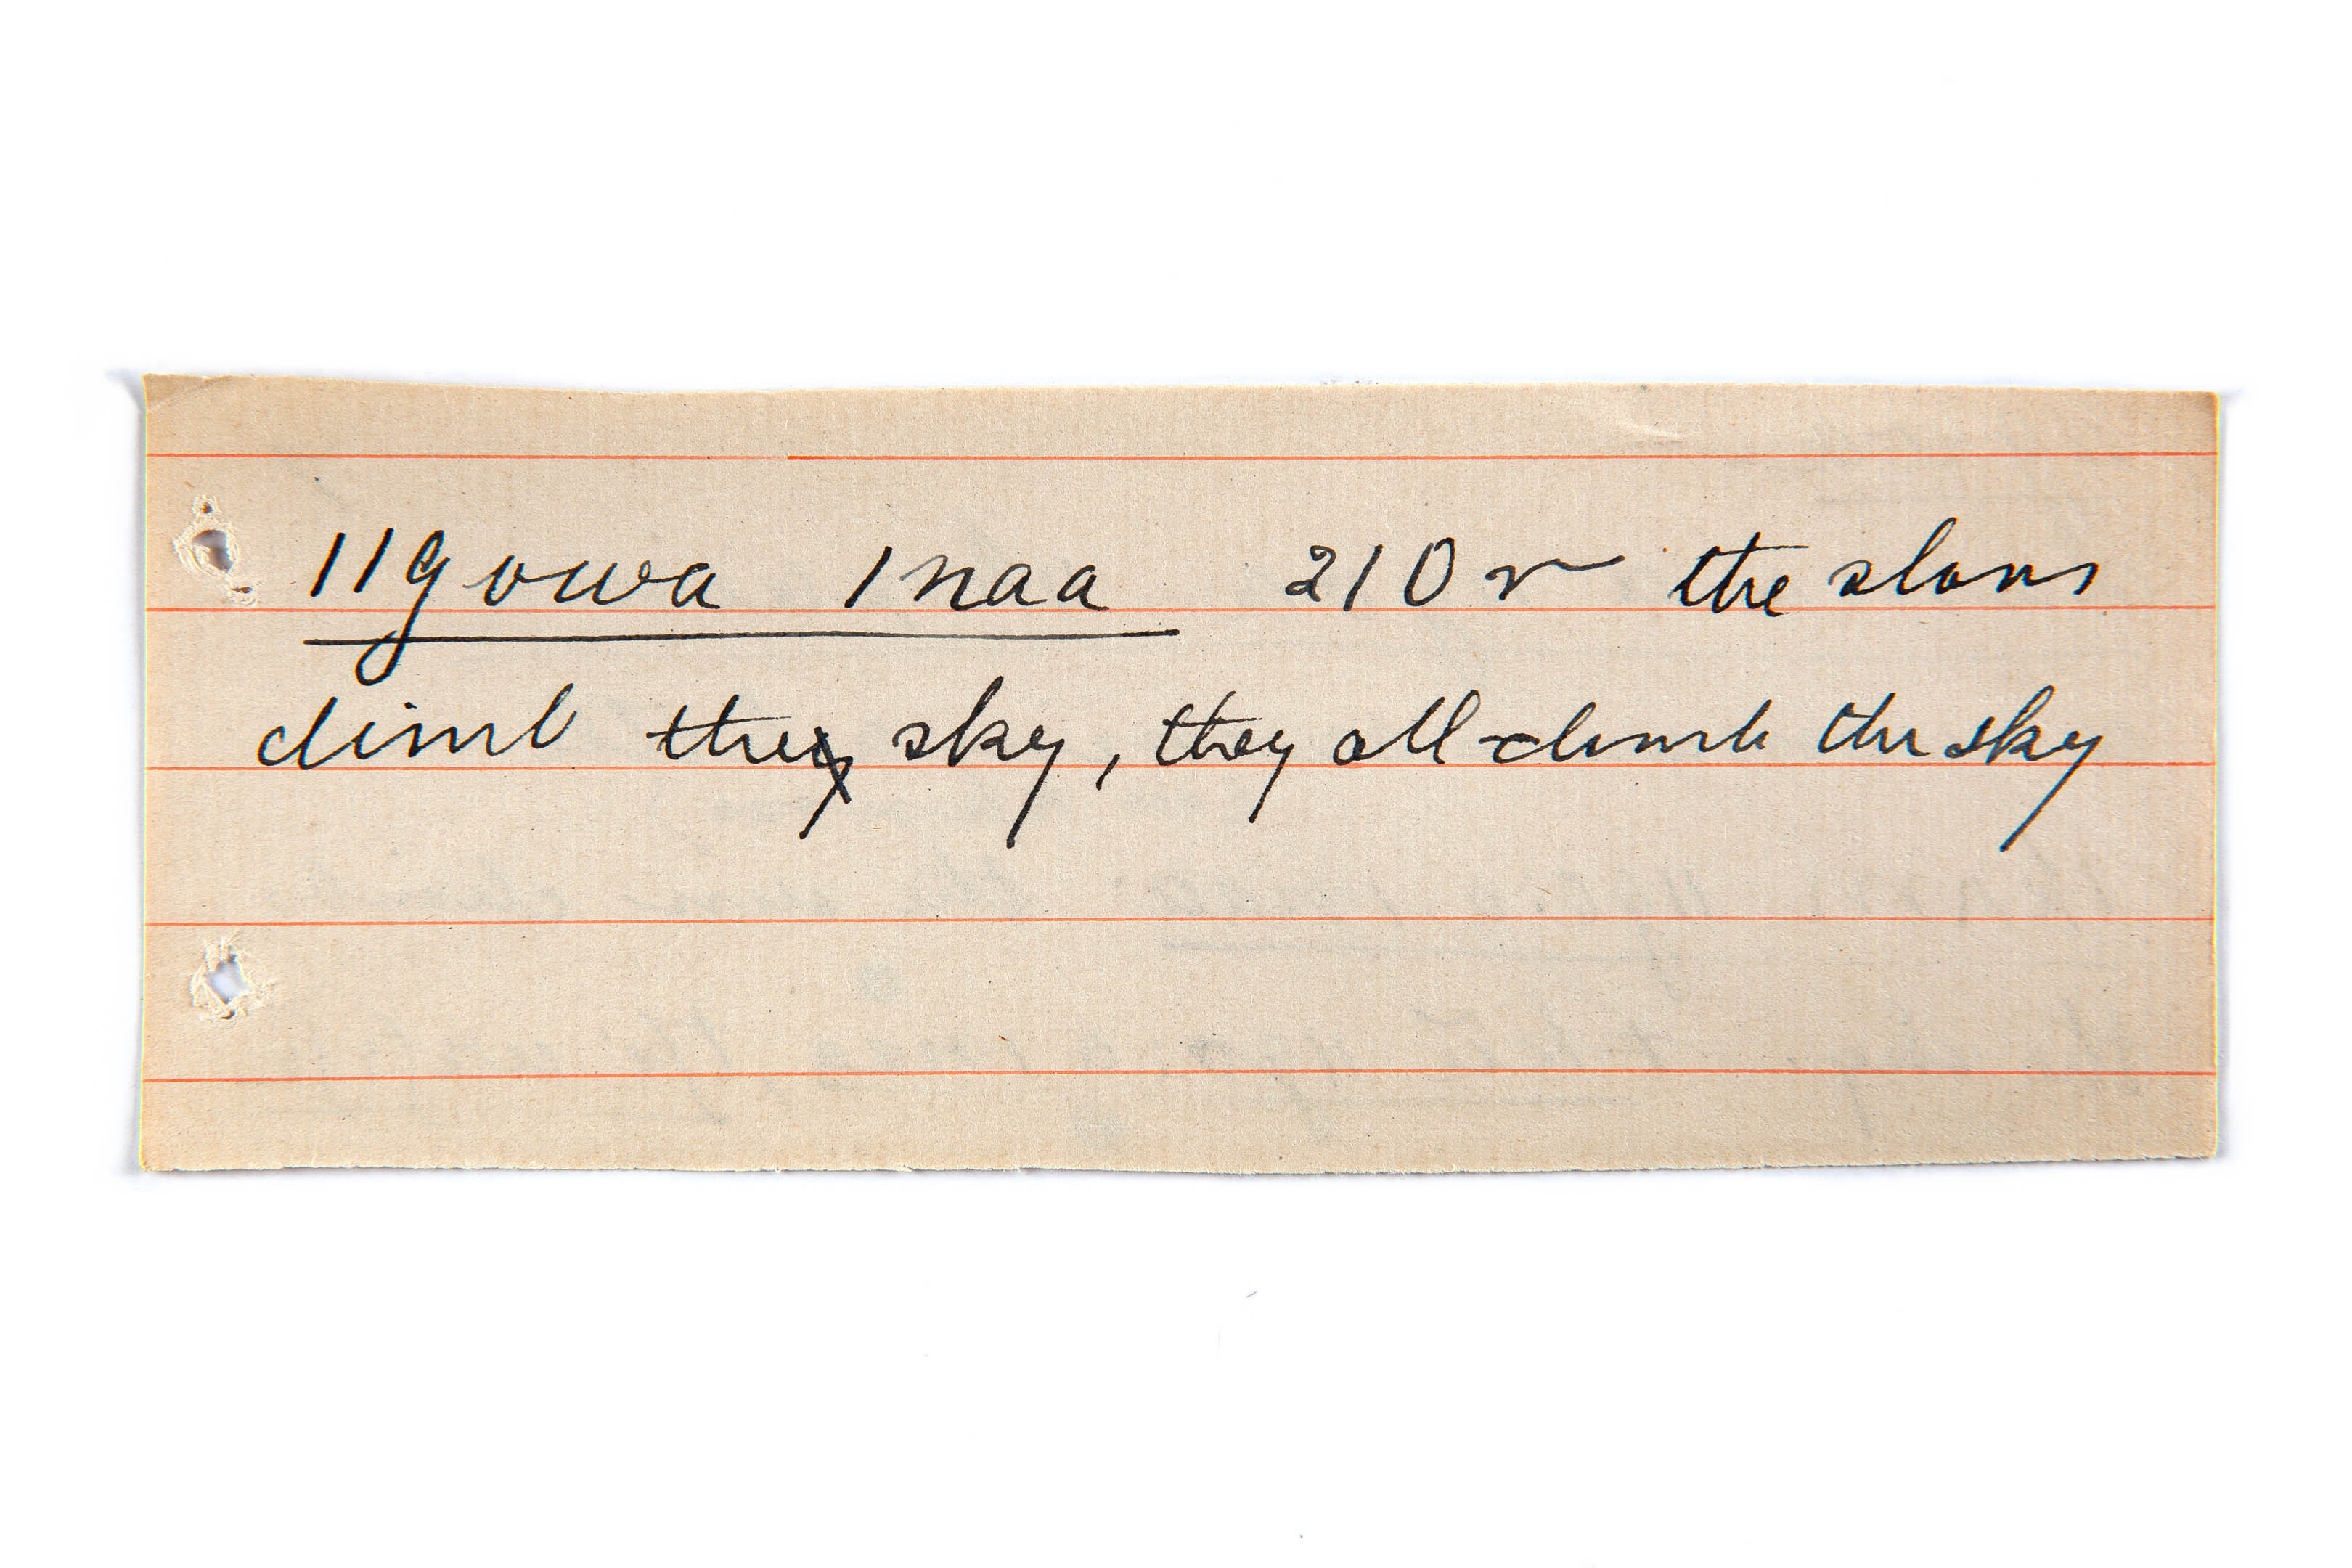 llgowa lnaa 210 r the stars
climb they sky, they all climb the sky